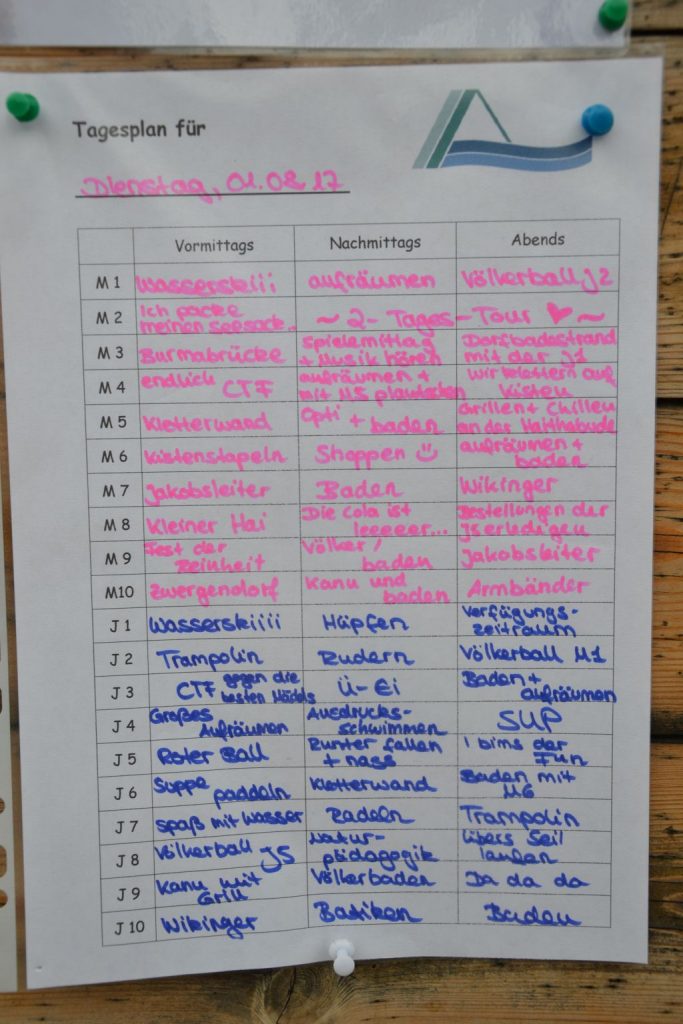 Tagesplan für
Dienstag, 01.08.17
Vormittags Nachmittags Abends
M 1 Wasserskiii aufräumen Völkerball J2
M 2 Ich packe meinen Seesack.. ~ 2-Tages-Tour ♥ ~
M 3 Burmabrücke Spielemittag + Musik hören Dorfbadestrand mit der J1
M 4 endlich CTF aufräumen + mit M5 plantschen Wir klettern auf Kisten
M 5 Kletterwand Opti + baden Grillen + Chillen an der Haithabude
M 6 Kistenstapeln Shoppen ☺ aufräumen + baden
M 7 Jakobsleiter Baden Wikinger
M 8 Kleiner Hai Die Cola ist leeeeer... Bestellungen der J5 erledigen
M 9 Fest der Reinheit Völker/ baden Jakobsleiter
M10 Zwergendorf Kanu und baden Armbänder
J 1 Wasserskiiii Hüpfen Verfügungs-zeitraum
J 2 Trampolin Rudern Völkerball M1
J 3 CTF gegen die besten Mädels Ü-Ei Baden + aufräumen
J 4 Großes Aufräumen Ausdrucks-schwimmen SUP
J 5 Roter Ball Runter fallen + nass 1 bims der Fun
J 6 Suppe paddeln Kletterwand Baden mit M6
J 7 Spaß mit Wasser Radeln Trampolin
J 8 Völkerball J5 Natur-pädagogik Übers Seil laufen
J 9 Kanu mit Grill Völkerbaden Da da da
J 10 Wikinger Batiken Baden